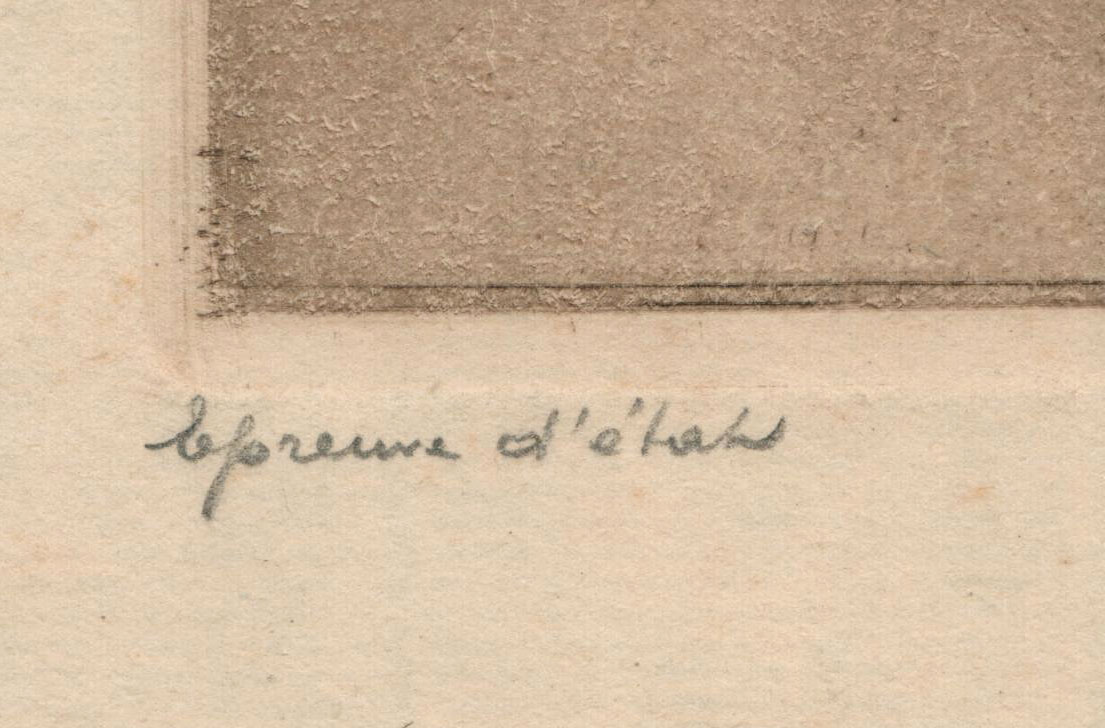 Epreuve d'état